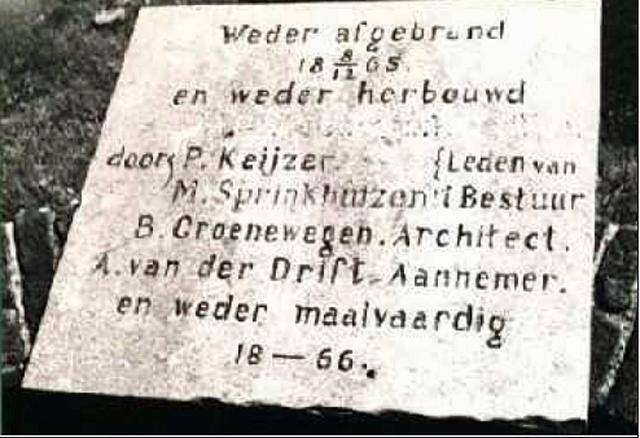 Weder afgebrand
18 8/12 65.
en weder herbouwd
door { P. Keijzer. { Leden van
M. Sprinkhuizen 't Bestuur
B. Groenewegen. Architect.
A. van der Drift - Aannemer.
en weder maalvaardig
18 — 66.